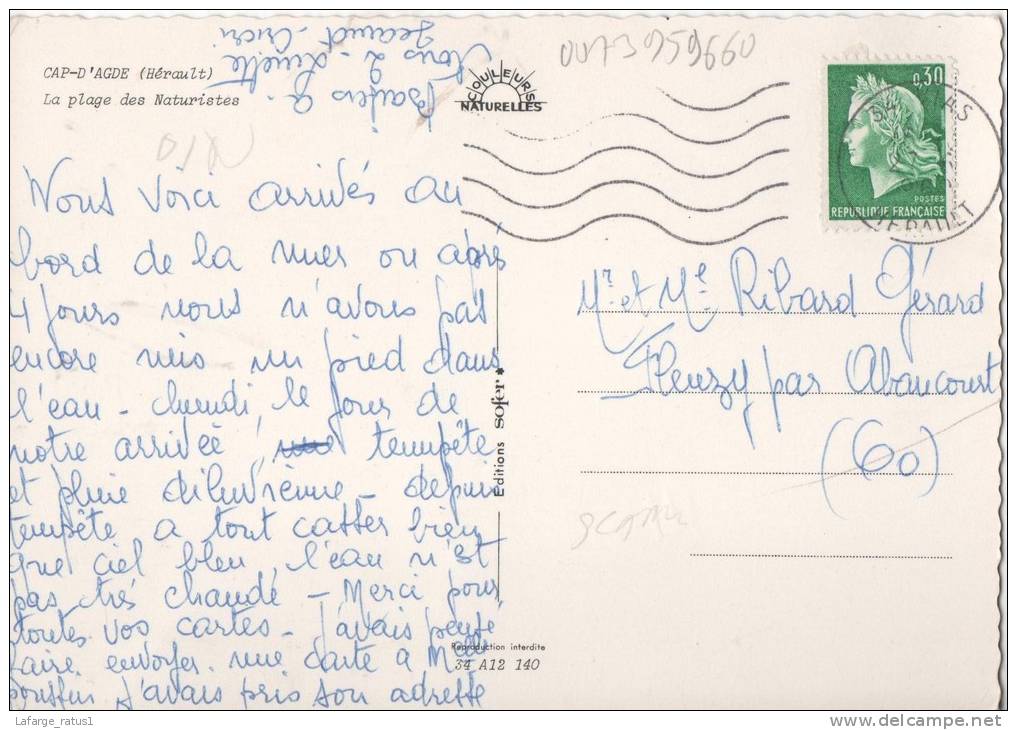 CAP-D'AGDE (Hérault)
La plage des Naturistes
COULEURS
NATURELLES
0073959660
0,30
POSTES
REPUBLIQUE FRANÇAISE
HERAULT
Nous voici arrivés au
bord de la mer ou après
4 jours nous n'avons pas
encore mis un pied dans
l'eau - le jour de
notre arrivée tempête
et pluie diluvienne - depuis
tempête a tout casser bien
que ciel bleu, l'eau n'est
pas très chaude - Merci pour
toutes vos cartes - J'avais pensé
faire envoyer une carte a
J'avais pris son adresse
Baisers a
Nous 2
Mr et Me Ribard Gérard
Fleuzy par Abancourt
(60)
Editions sofer
Reproduction interdite
34 A12 140
Lafarge_ratus1
delcampe.net